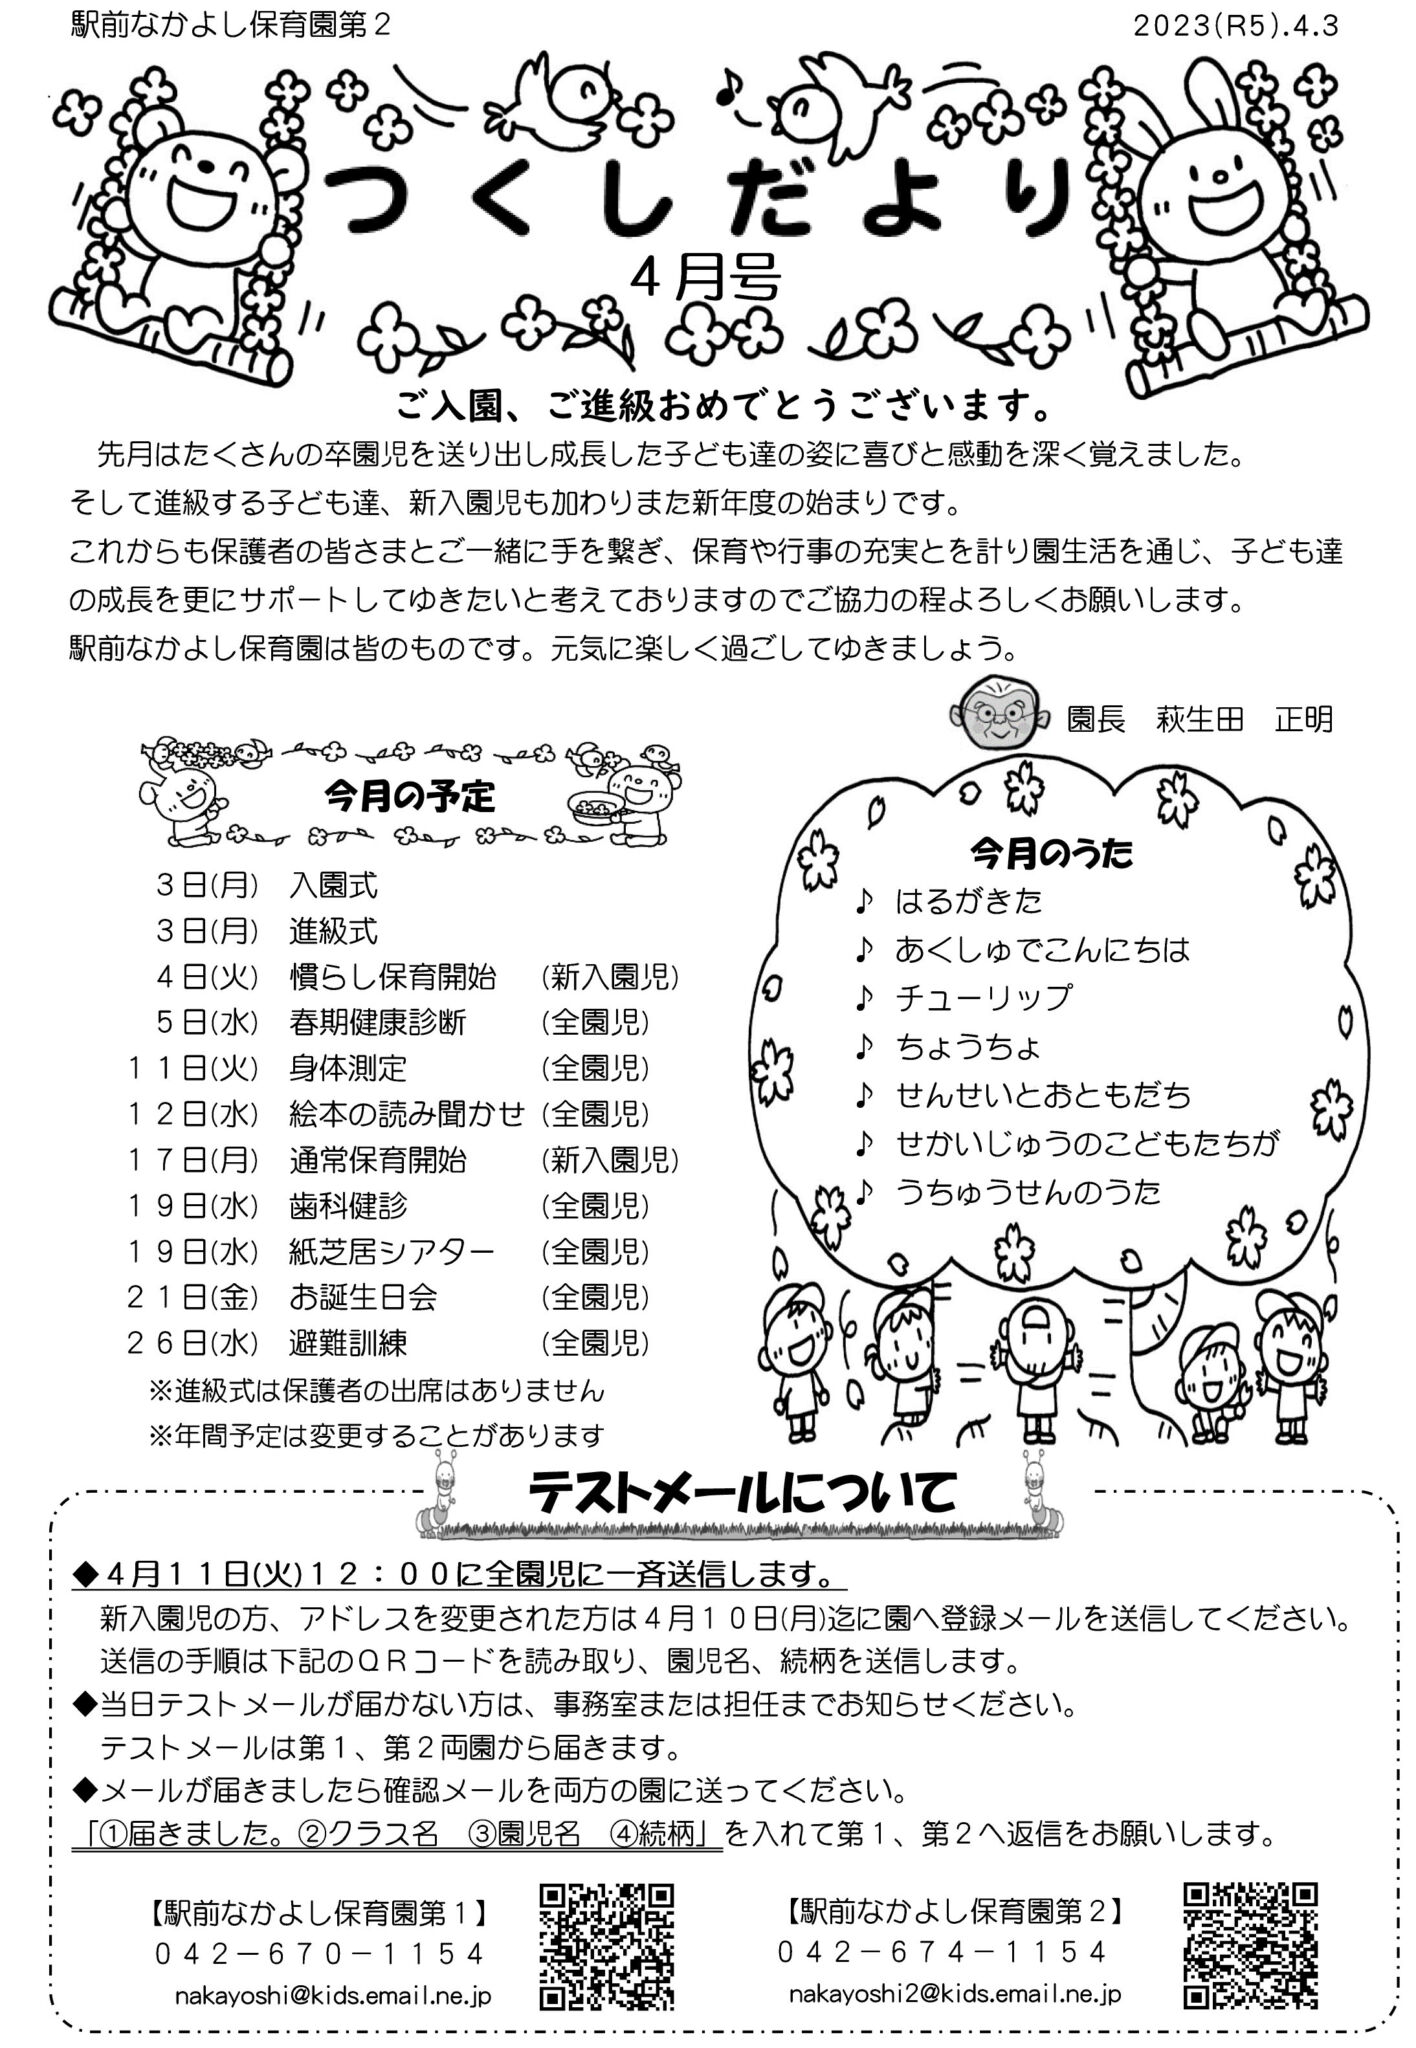 駅前なかよし保育園第２
2023(R5).4.3
つくしだより
４月号
ご入園、ご進級おめでとうございます。
先月はたくさんの卒園児を送り出し成長した子ども達の姿に喜びと感動を深く覚えました。
そして進級する子ども達、新入園児も加わりまた新年度の始まりです。
これからも保護者の皆さまとご一緒に手を繋ぎ、保育や行事の充実とを計り園生活を通じ、子ども達
の成長を更にサポートしてゆきたいと考えておりますのでご協力の程よろしくお願いします。
駅前なかよし保育園は皆のものです。元気に楽しく過ごしてゆきましょう。
園長　萩生田　正明
今月の予定
３日(月)　入園式
３日(月)　進級式
４日(火)　慣らし保育開始　(新入園児)
５日(水)　春期健康診断　(全園児)
１１日(火)　身体測定　(全園児)
１２日(水)　絵本の読み聞かせ (全園児)
１７日(月)　通常保育開始　(新入園児)
１９日(水)　歯科健診　(全園児)
１９日(水)　紙芝居シアター　(全園児)
２１日(金)　お誕生日会　(全園児)
２６日(水)　避難訓練　(全園児)
※進級式は保護者の出席はありません
※年間予定は変更することがあります
今月のうた
♪ はるがきた
♪ あくしゅでこんにちは
♪ チューリップ
♪ ちょうちょ
♪ せんせいとおともだち
♪ せかいじゅうのこどもたちが
♪ うちゅうせんのうた
テストメールについて
◆４月１１日(火)１２：００に全園児に一斉送信します。
新入園児の方、アドレスを変更された方は４月１０日(月)迄に園へ登録メールを送信してください。
送信の手順は下記のＱＲコードを読み取り、園児名、続柄を送信します。
◆当日テストメールが届かない方は、事務室または担任までお知らせください。
テストメールは第１、第２両園から届きます。
◆メールが届きましたら確認メールを両方の園に送ってください。
「①届きました。②クラス名　③園児名　④続柄」を入れて第１、第２へ返信をお願いします。
【駅前なかよし保育園第１】
０４２－６７０－１１５４
nakayoshi@kids.email.ne.jp
【駅前なかよし保育園第２】
０４２－６７４－１１５４
nakayoshi2@kids.email.ne.jp